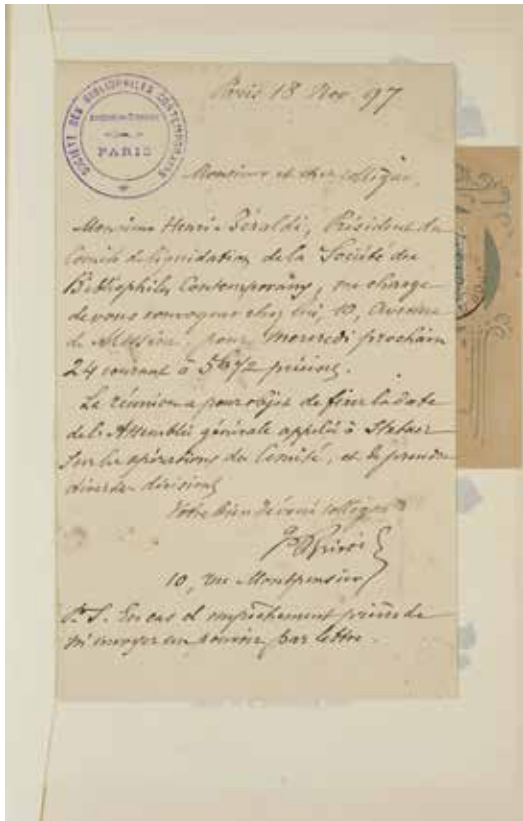 SOCIÉTÉ DES BIBLIOPHILES CONTEMPORAINS
PARIS
Paris 18 Nov 97
Monsieur et cher collègue,
Monsieur Henri Béraldi, Président du
Comité de liquidation de la Société des
Bibliophiles Contemporains, me charge
de vous convoquer chez lui, 10, Avenue
de Messine, pour mercredi prochain
24 courant à 5h 1/2 précises.
La réunion a pour objet de fixer la date
de l'Assemblée générale appelée à Statuer
Sur les opérations du Comité, et de prendre
diverses décisions
Votre bien dévoué collègue
10, rue Montpensier
P.S. En cas d'empêchement prière de
m'envoyer un pouvoir par lettre.